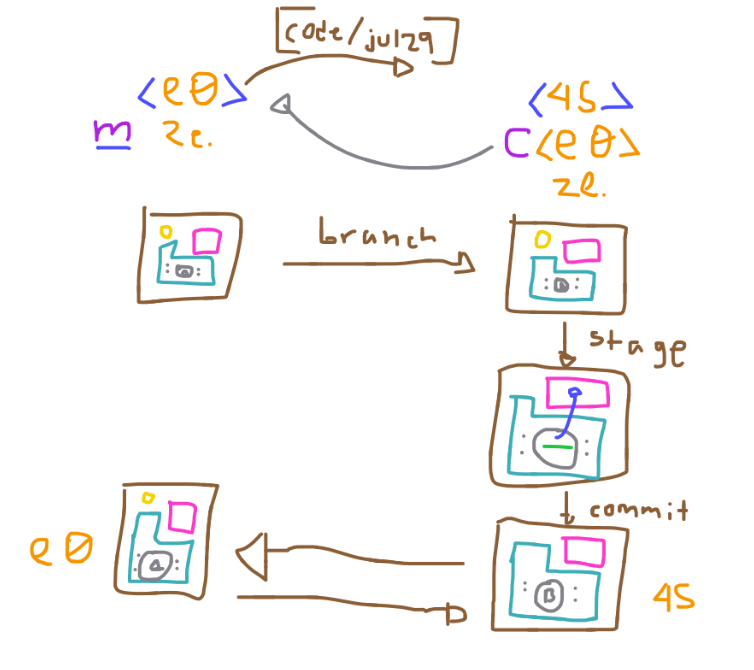 [code/jul29]
<e0>
m 2e.
<4S>
C<e0>
2e.
branch
stage
commit
A
B
e0
4S